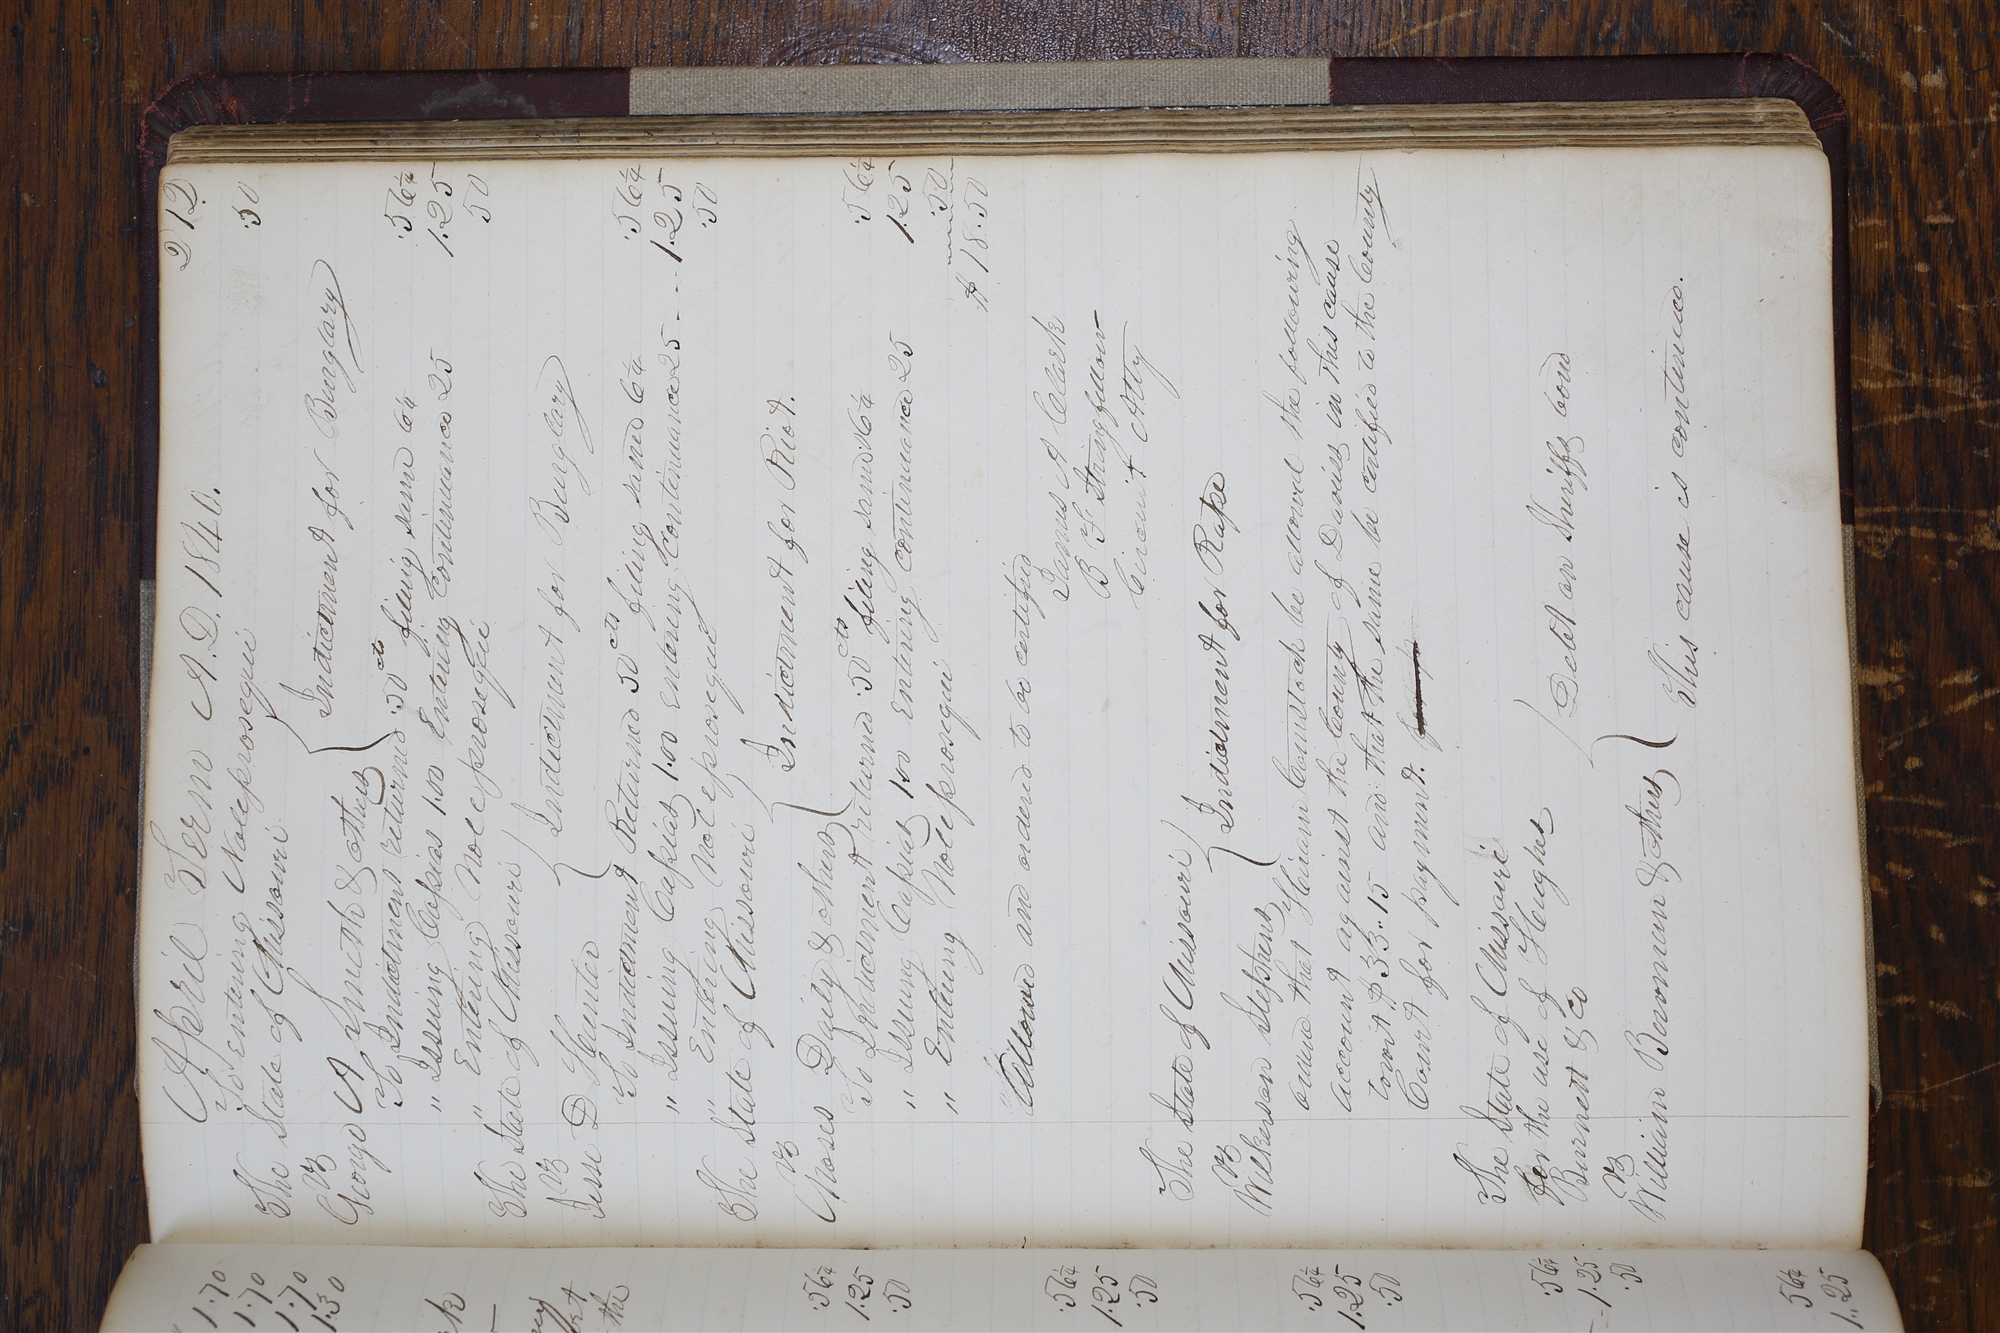 April Term A.D. 1846.
212
To entering Noleprosequi
.50
The State of Missouri
vs
Indictment for Burglary
George A Smith & others
To Indictment returned .50 cts filing same 6¼
.56¼
" Issuing Capias 1.00 Entering Continuance 25
1.25
" Entering Noleprosequi
50
The State of Missouri
vs
Indictment for Burglary
Jesse D Hunter
To Indictment Returned 50 cts filing same 6¼
.56¼
" Issuing Capias 1.00 Entering Continuance 25
1.25
" Entering Noleprosequi
.50
The State of Missouri
vs
Indictment for Riot.
Moses Daily & others
To Indictment returned .50 cts filing same 6¼
.56¼
" Issuing Capias 1.00 Entering continuance 25
1.25
" Entering Noleprosequi
.50
$18.50
Allowed and ordered to be certified
James A Clark
B F Stringfellow
Circuit Atty
The State of Missouri
vs
Indictment for Rape
Wilkerson Stephens
ordered that Hiram Comstock be allowed the following
account against the County of Daviess in this cause
towit $33.15 and that the same be certified to the County
Court for payment.
The State of Missouri
for the use of Hughes
Burnett & Co
Debt on Sheriffs bond
vs
William Bowman & others
This cause is continued.
1.70
1.70
1.70
1.30
the
.56¼
1.25
.50
.56¼
1.25
.50
.56¼
1.25
.50
.56¼
1.25
.50
56¼
1.25